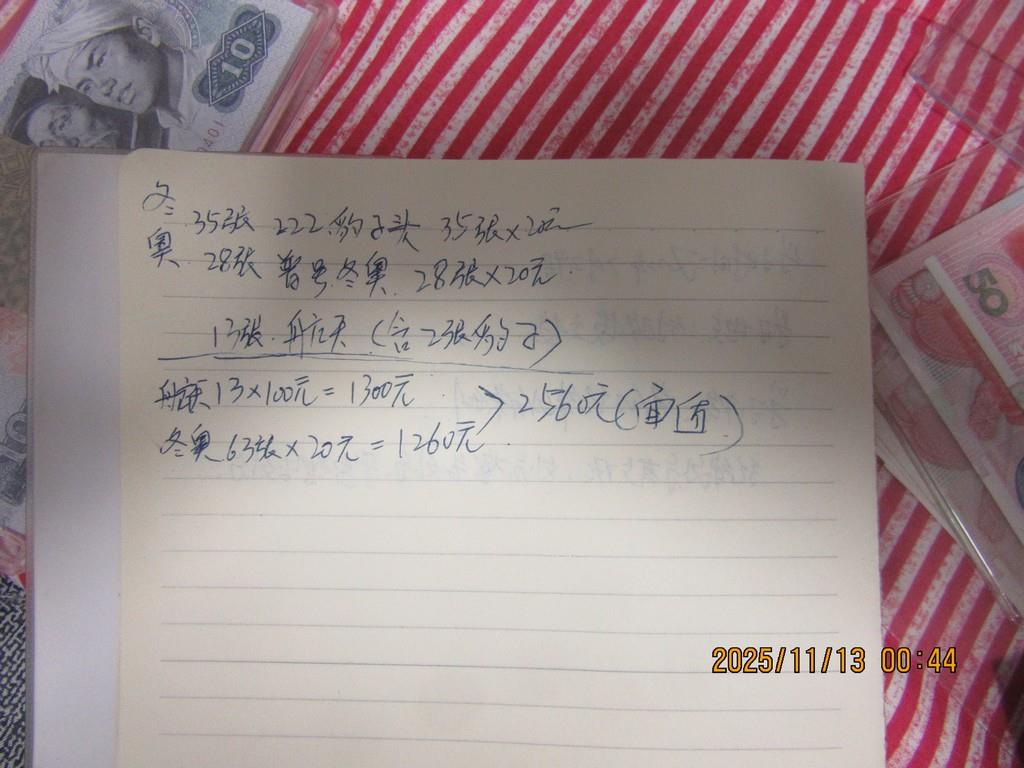 10
0401
冬奥
35张 222豹子头 35张×20元
28张 普号冬奥 28张×20元
13张 航天 (含2张豹子)
航天13×100元=1300元
>2560元(面值)
冬奥63张×20元=1260元
50
2025/11/13 00:44